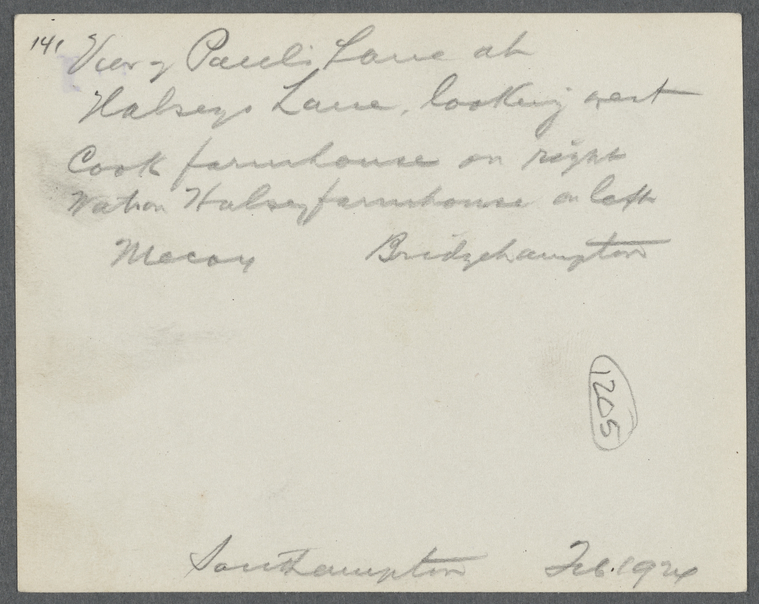 141
View of Paul's Lane at
Halseys Lane, looking west
Cook farmhouse on right
Watson Halsey farmhouse on left
Mecox Bridgehampton
1205
Southampton Feb. 1924